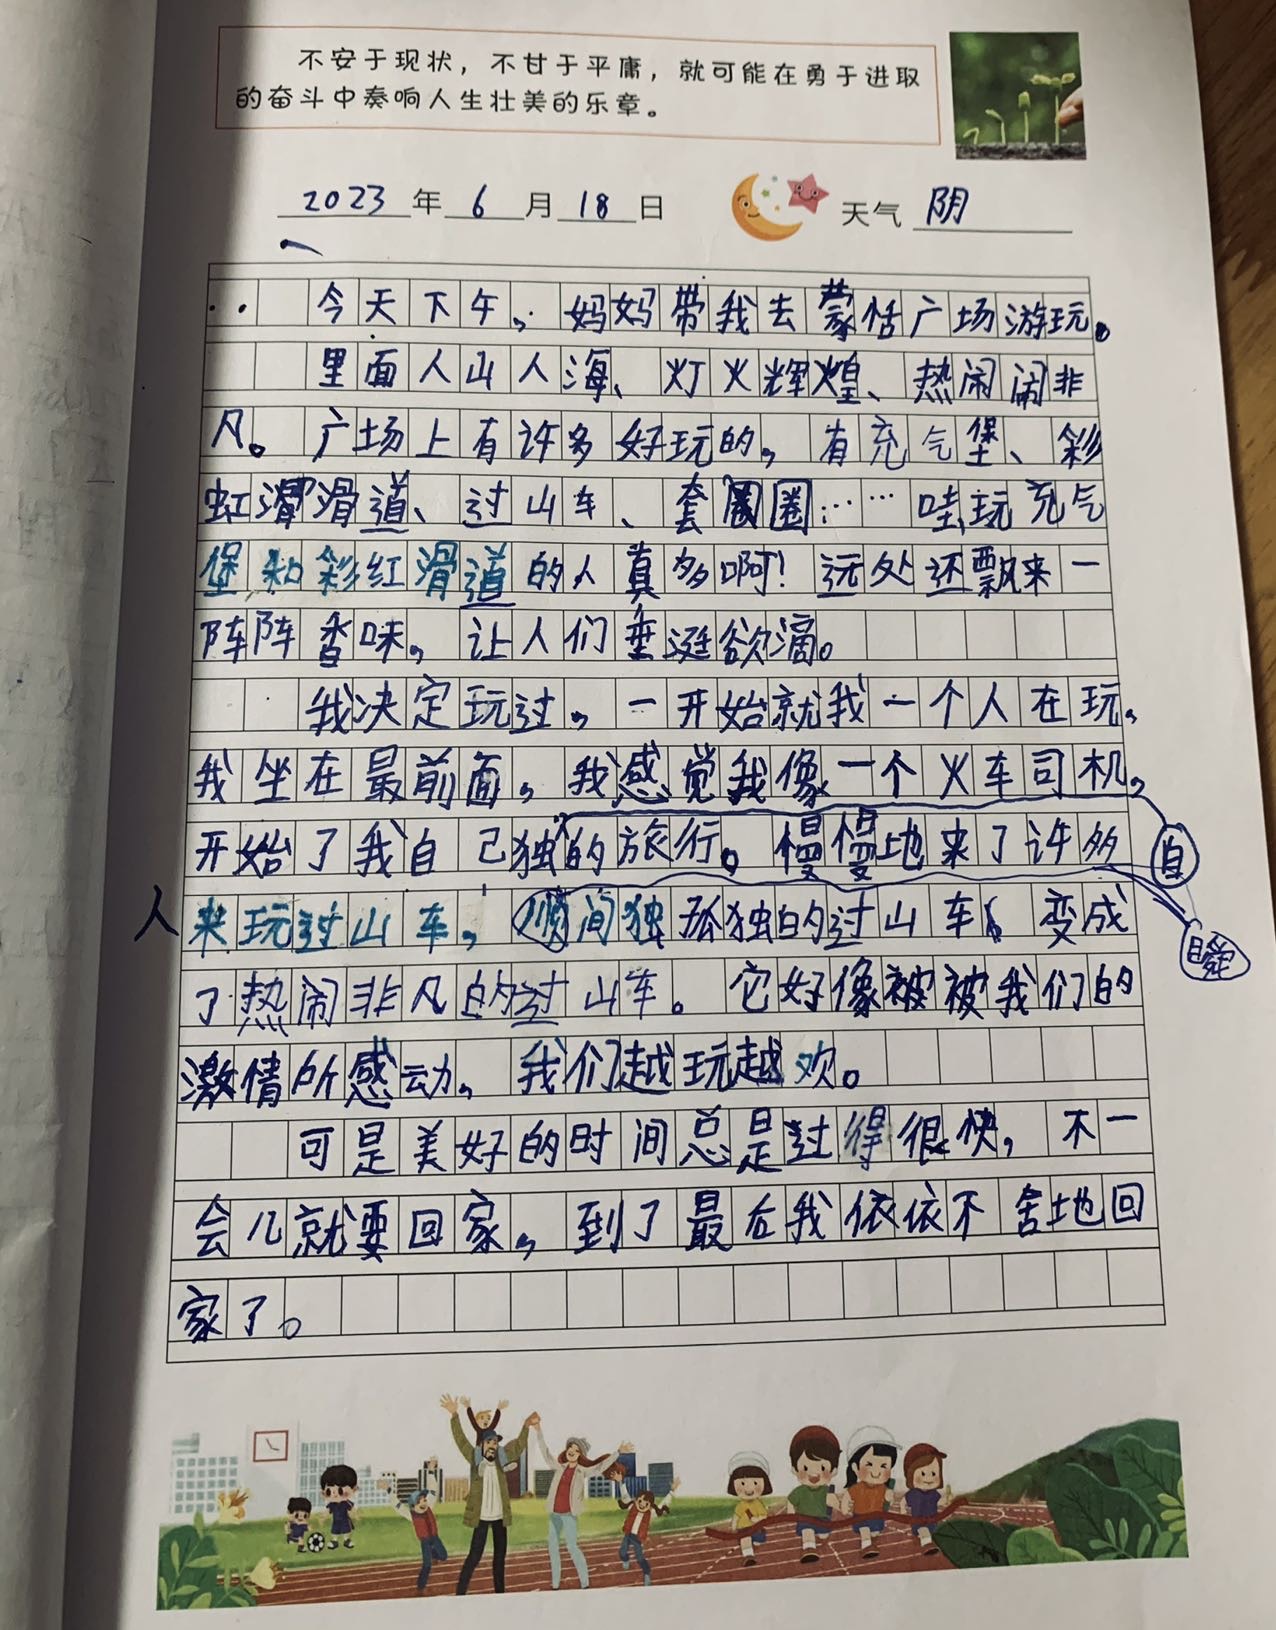 不安于现状，不甘于平庸，就可能在勇于进取
的奋斗中奏响人生壮美的乐章。
2023年6月18日 天气 阴
今天下午，妈妈带我去蒙恬广场游玩。
里面人山人海、灯火辉煌、热闹闹非
凡。广场上有许多好玩的，有充气堡、彩
虹滑滑道、过山车、套圈圈……哇，玩充气
堡和彩红滑道的人真多啊！远处还飘来一
阵阵香味，让人们垂涎欲滴。
我决定玩过，一开始就我一个人在玩，
我坐在最前面，我感觉我像一个火车司机，
开始了我自己独自的旅行。慢慢地来了许多
人来玩过山车，瞬间独孤独的过山车，变成
了热闹非凡的过山车。它好像被被我们的
激情所感动，我们越玩越欢。
可是美好的时间总是过得很快，不一
会儿就要回家，到了最后我依依不舍地回
家了。